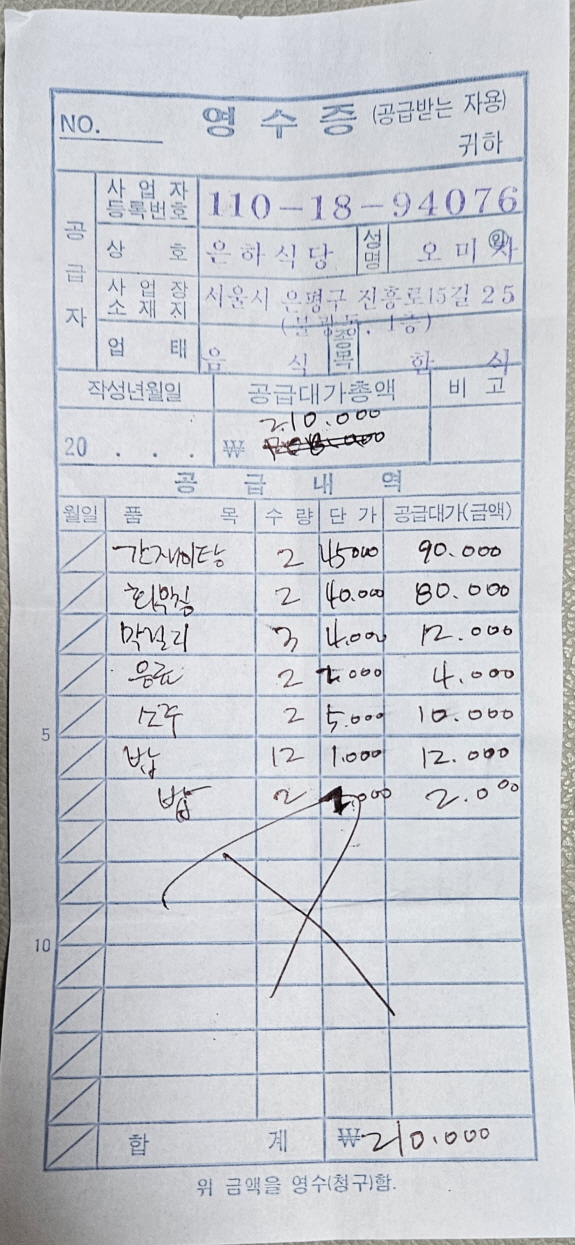 NO. 영 수 증 (공급받는 자용)
귀하
공급자
사업자등록번호 110-18-94076
상 호 은하식당 성명 오미자 ㊞
사업장소재지 서울시 은평구 진흥로15길 25
(불광동, 1층)
업 태 음 식 종목 한 식
작성년월일 공급대가총액 비 고
210.000
20 . . . ₩
공 급 내 역
월일 품 목 수 량 단 가 공급대가(금액)
간재미탕 2 45000 90.000
회무침 2 40.000 80.000
막걸리 3 4.000 12.000
음료 2 2.000 4.000
5 소주 2 5.000 10.000
밥 12 1.000 12.000
밥 2 1.000 2.000
10
합 계 ₩210.000
위 금액을 영수(청구)함.